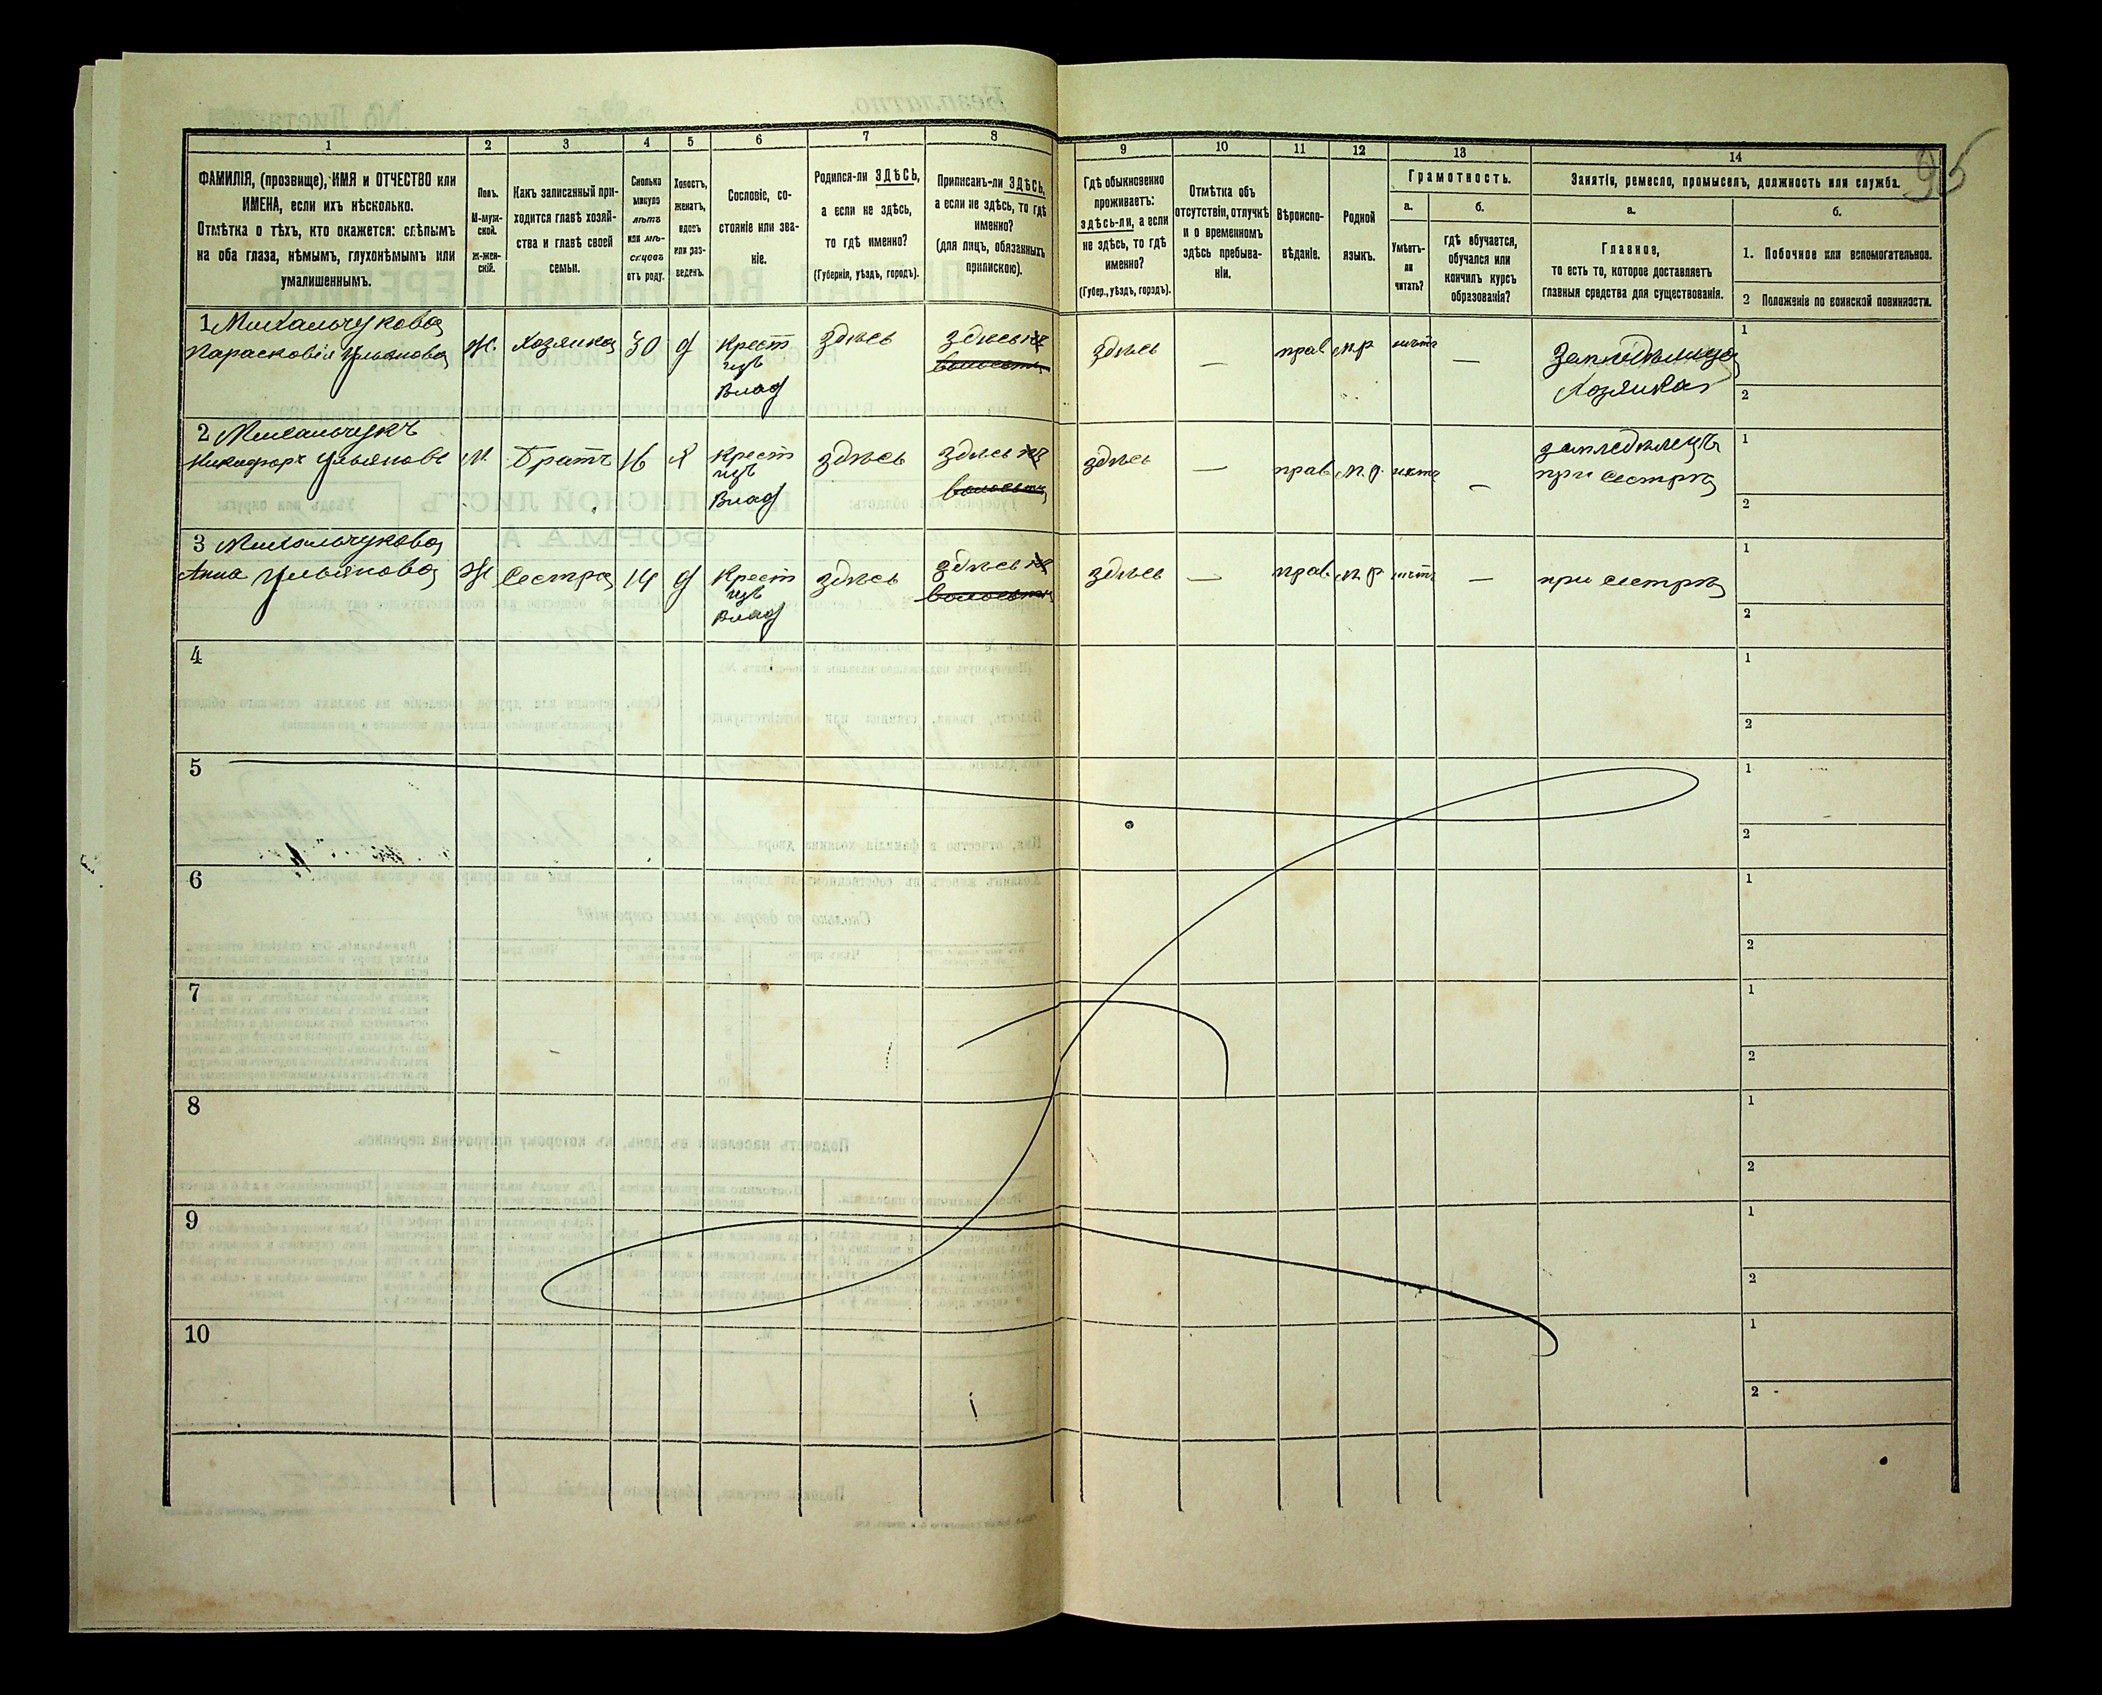 95
1 2 3 4 5 6 7 8 9 10 11 12 13 14
ФАМИЛІЯ, (прозвище), ИМЯ и ОТЧЕСТВО или
ИМЕНА, если ихъ нѣсколько.
Отмѣтка о тѣхъ, кто окажется: слѣпымъ
на оба глаза, нѣмымъ, глухонѣмымъ или
умалишеннымъ.
Полъ.
М-муж-
ской.
Ж-жен-
скій.
Какъ записанный при-
ходится главѣ хозяй-
ства и главѣ своей
семьи.
Сколько
минуло
лѣтъ
или мѣ-
сяцевъ
отъ роду.
Холостъ,
женатъ,
вдовъ
или раз-
веденъ.
Сословіе, со-
стояніе или зва-
ніе.
Родился-ли ЗДѢСЬ,
а если не здѣсь,
то гдѣ именно?
(Губернія, уѣздъ, городъ).
Приписанъ-ли ЗДѢСЬ,
а если не здѣсь, то гдѣ
именно?
(для лицъ, обязанныхъ
припискою).
Гдѣ обыкновенно
проживаетъ:
здѣсь-ли, а если
не здѣсь, то гдѣ
именно?
(Губер., уѣздъ, городъ).
Отмѣтка объ
отсутствіи, отлучкѣ
и о временномъ
здѣсь пребыва-
ніи.
Вѣроиспо-
вѣданіе.
Родной
языкъ.
Грамотность.
а.
Умѣетъ-
ли
читать?
б.
гдѣ обучается,
обучался или
кончилъ курсъ
образованія?
Занятія, ремесло, промыселъ, должность или служба.
а.
Главное,
то есть то, которое доставляетъ
главныя средства для существованія.
б.
1. Побочное или вспомогательное.
2 Положеніе по воинской повинности.
1 Михальчукова
Парасковія Ульянова Ж. Хозяйка 30 д Крест
изъ
Влад здѣсь здѣсь здѣсь — прав м.р нѣтъ — Земледѣлица
Хозяйка
1
2
2 Михальчукъ
Никифоръ Ульяновъ М. Братъ 16 х Крест
изъ
Влад здѣсь здѣсь здѣсь — прав м.р. нѣтъ — земледѣлецъ
при сестрѣ
1
2
3 Михальчукова
Анна Ульянова Ж Сестра 14 д Крест
изъ
Влад здѣсь здѣсь здѣсь — прав. м.р нѣтъ — при сестрѣ
1
2
4
1
2
5
1
2
6
1
2
7
1
2
8
1
2
9
1
2
10
1
2